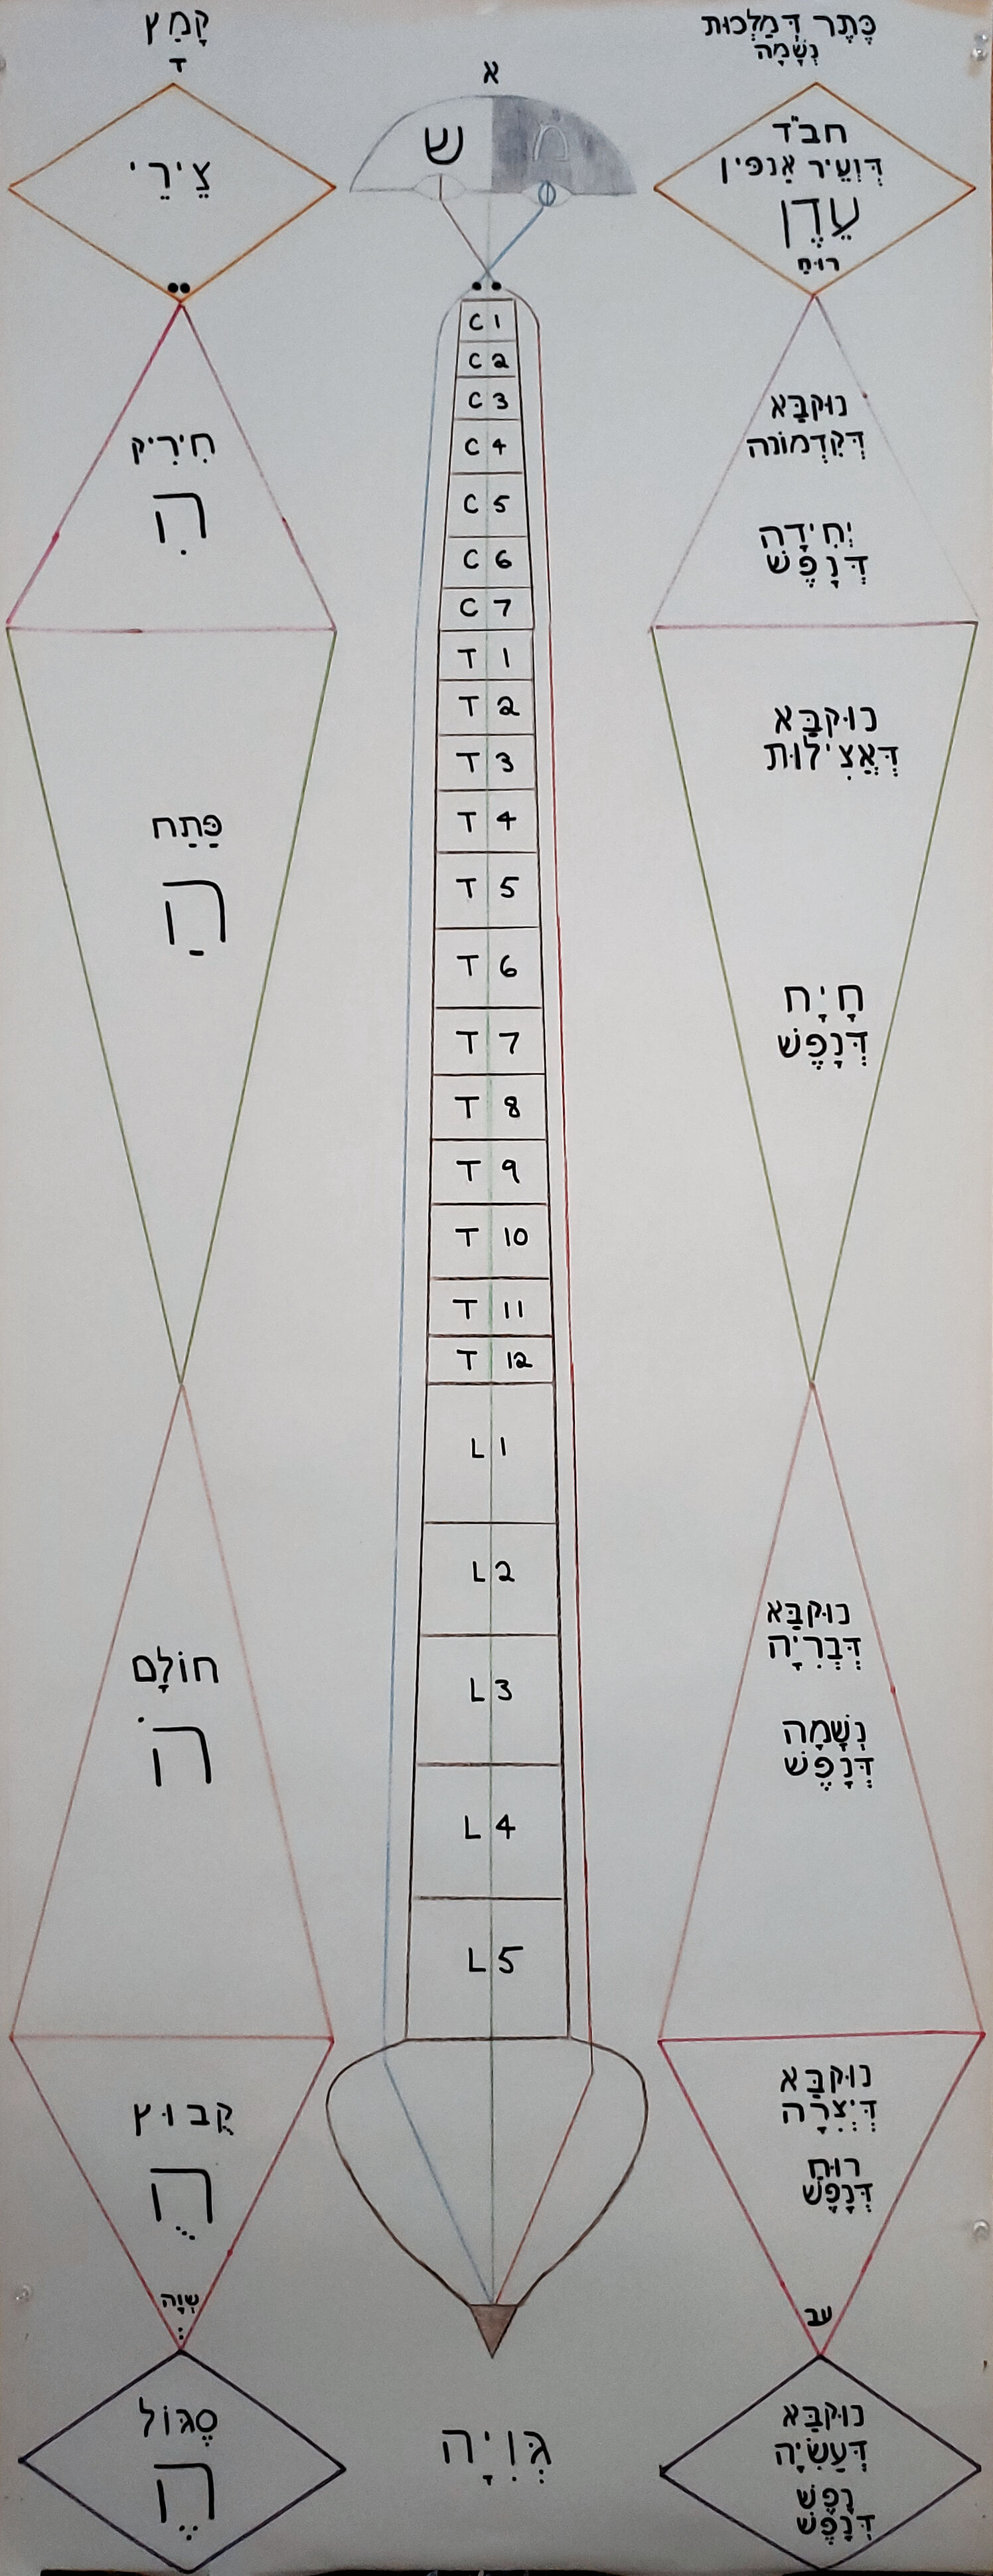 קָמַץ
ד
צֵירֵי
חִירִיק
הִ
פַּתַח
הַ
חוֹלָם
הֹ
קֻבוּץ
הֻ
שְׁוָה
סֶגּוֹל
הֶ
א
ש מ
C 1
C 2
C 3
C 4
C 5
C 6
C 7
T 1
T 2
T 3
T 4
T 5
T 6
T 7
T 8
T 9
T 10
T 11
T 12
L 1
L 2
L 3
L 4
L 5
גְּוִיָּה
כֶּתֶר דְּמַלְכוּת
נְשָׁמָה
חב"ד
דִּזְעֵיר אַנפִּין
עֵדֶן
רוּחַ
נוּקבָּא
דְּקַדְמוֹנה
יְחִידָה
דְּנֶפֶשׁ
נוּקבָּא
דַּאֲצִילוּת
חָיָּה
דְּנֶפֶשׁ
נוּקבָּא
דִּבְרִיָה
נְשָׁמָה
דְּנֶפֶשׁ
נוּקבָּא
דִּיְצִרָה
רוּחַ
דְּנֶפֶשׁ
עב
נוּקבָּא
דַּעֲשִׂיָה
נֶפֶשׁ
דְּנֶפֶשׁ